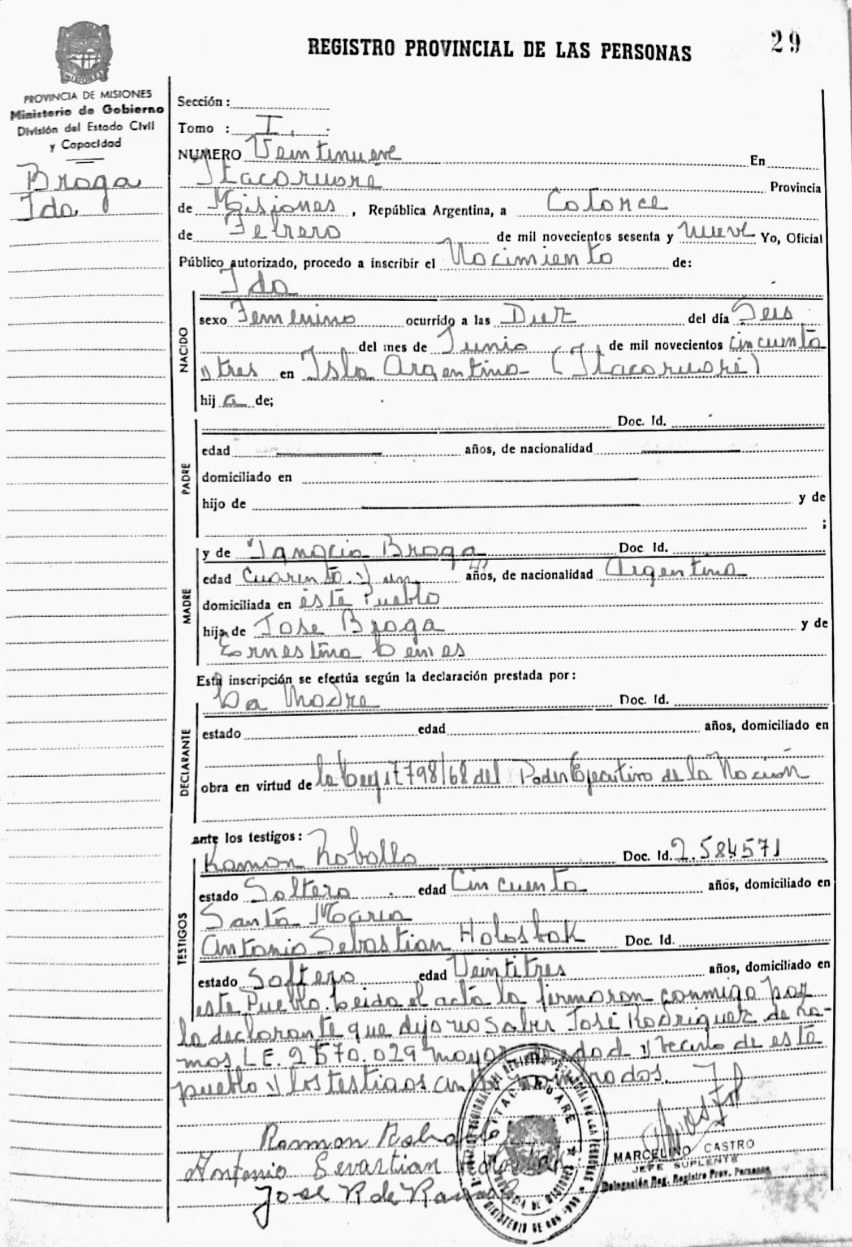 REGISTRO PROVINCIAL DE LAS PERSONAS
29
PROVINCIA DE MISIONES
Ministerio de Gobierno
División del Estado Civil
y Capacidad
Braga
Ida
Sección:
Tomo : I
NUMERO Veintinueve En
Itacaruaré Provincia
de Misiones, República Argentina, a Catorce
de Febrero de mil novecientos sesenta y nueve Yo, Oficial
Público autorizado, procedo a inscribir el Nacimiento de:
Ida
NACIDO
sexo Femenino ocurrido a las Diez del día Seis
del mes de Junio de mil novecientos cincuenta
y tres en Isla Argentina (Itacaruaré)
hija de;
PADRE
Doc. Id.
edad años, de nacionalidad
domiciliado en
hijo de y de
;
MADRE
y de Ignacia Braga Doc. Id.
edad Cuarenta y un años, de nacionalidad Argentina
domiciliada en éste Pueblo
hija de José Braga y de
Ernestina
Esta inscripción se efectúa según la declaración prestada por:
DECLARANTE
La Madre Doc. Id.
estado edad años, domiciliado en
obra en virtud de la Ley 17798/68 del Poder Ejecutivo de la Nación
ante los testigos:
TESTIGOS
Ramon Roballo Doc. Id. 2.584571
estado Soltero edad Cincuenta años, domiciliado en
Santa Maria
Antonio Sebastian Holostak Doc. Id.
estado Soltero edad Veintitres años, domiciliado en
este Pueblo. Leida el acta la firmaron conmigo por
la declarante que dijo no saber José Rodriguez de Ra-
mos L.E. 2570.029 mayor edad y vecino de este
pueblo y los testigos
Ramon
Antonio Sevastian
Jose R de
ITACARUARE
MARCELINO CASTRO
JEFE SUPLENTE
Delegación Reg. Registro Prov. Personas